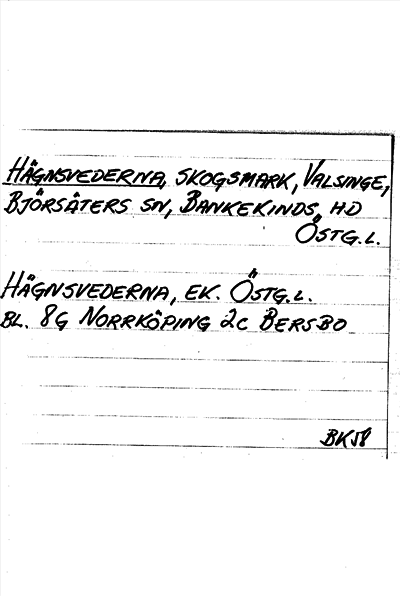 HÄGNSVEDERNA, SKOGSMARK, VALSINGE,
BJÖRSÄTERS SN, BANKEKINDS HD
ÖSTG.L.
HÄGNSVEDERNA, EK. ÖSTG.L.
BL. 8G NORRKÖPING 2C BERSBO